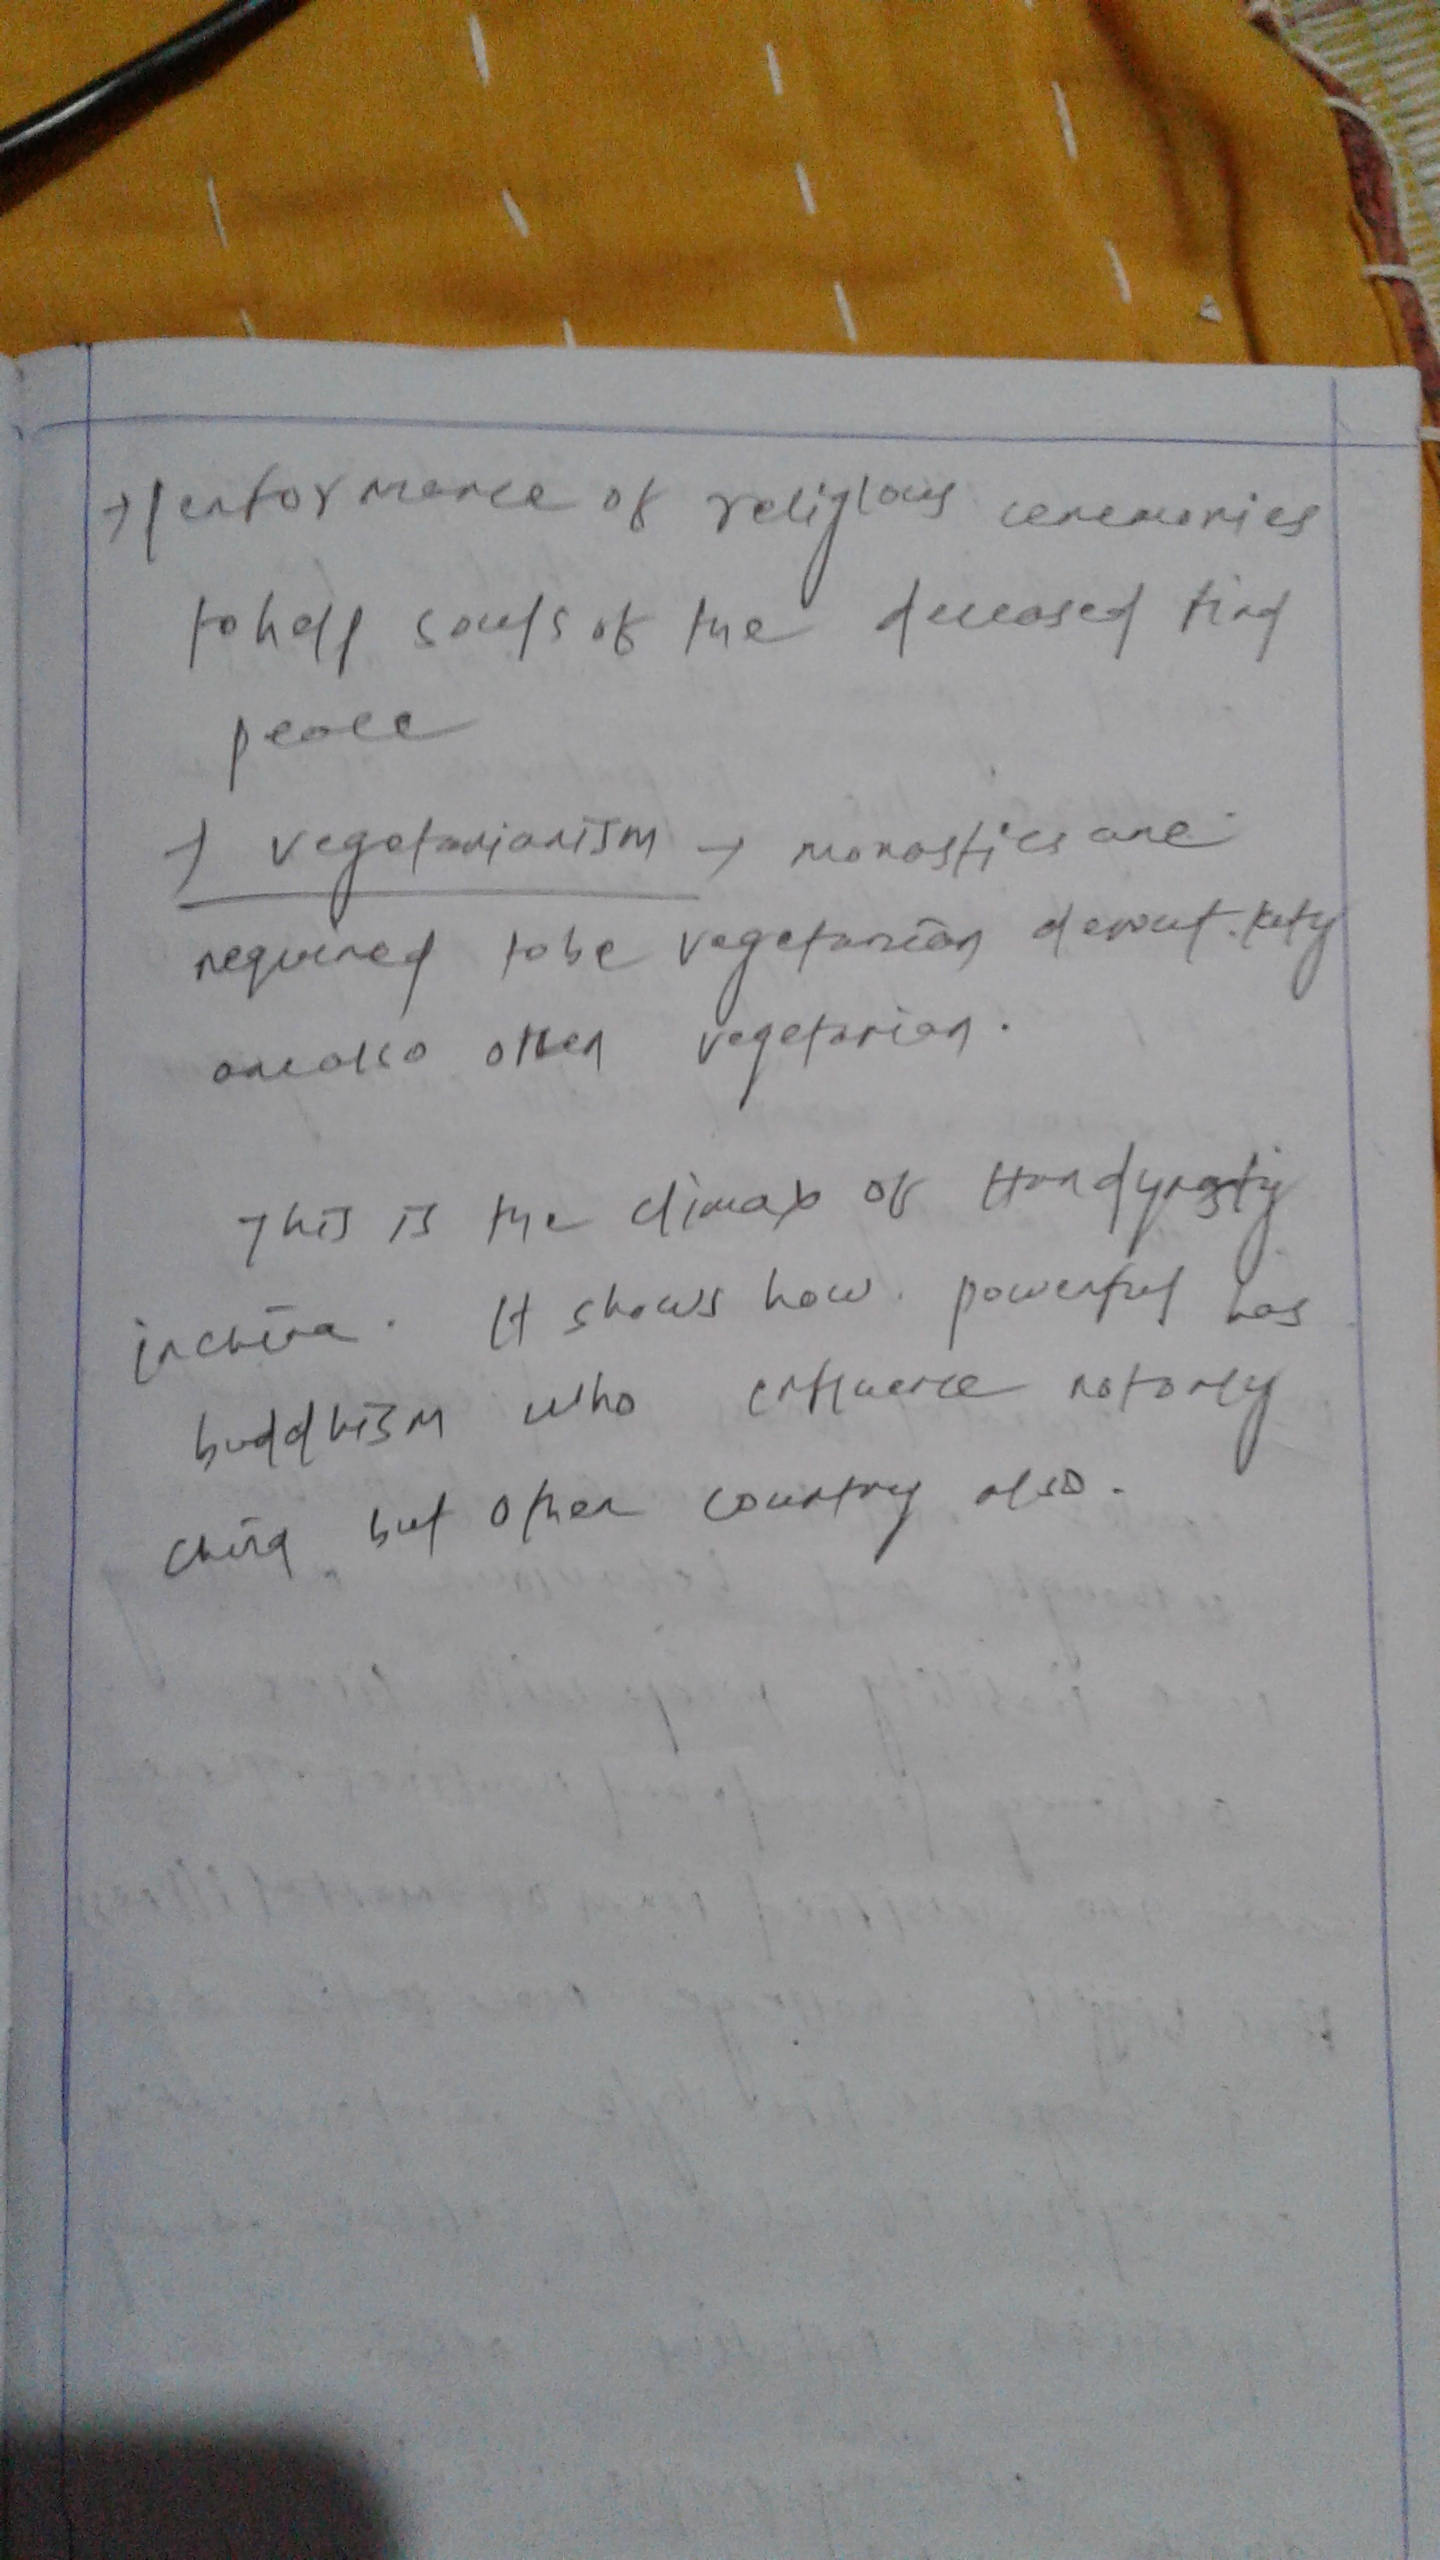 → Performance of religious ceremonies
to help souls of the deceased find
peace
→ vegetarianism → monastics are
required to be vegetarian devout
are also often vegetarian.
This is the climax of Han dynasty
in china. It shows how powerful has
buddhism who influence not only
china but other country also.